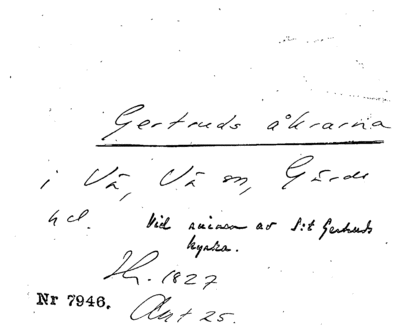 Gertruds åkrarna
i Vä, Vä sn, Gärds
hd. Vid ruinen av S:t Gertruds
kyrka.
Sk. 1827
Nr 7946. Akt 25.